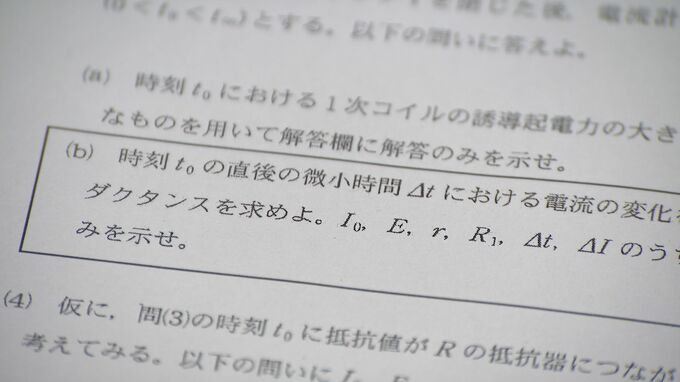 を閉じた後，電流計
(0 < t₀ < t∞)とする。以下の問いに答えよ。
(a) 時刻 t₀ における1次コイルの誘導起電力の大き
なものを用いて解答欄に解答のみを示せ。
(b) 時刻 t₀ の直後の微小時間 Δt における電流の変化を
ダクタンスを求めよ。I₀, E, r, R₁, Δt, ΔI のうち
みを示せ。
(4) 仮に，問(3)の時刻 t₀ に抵抗値が R の抵抗器につなが
考えてみる。以下の問いに